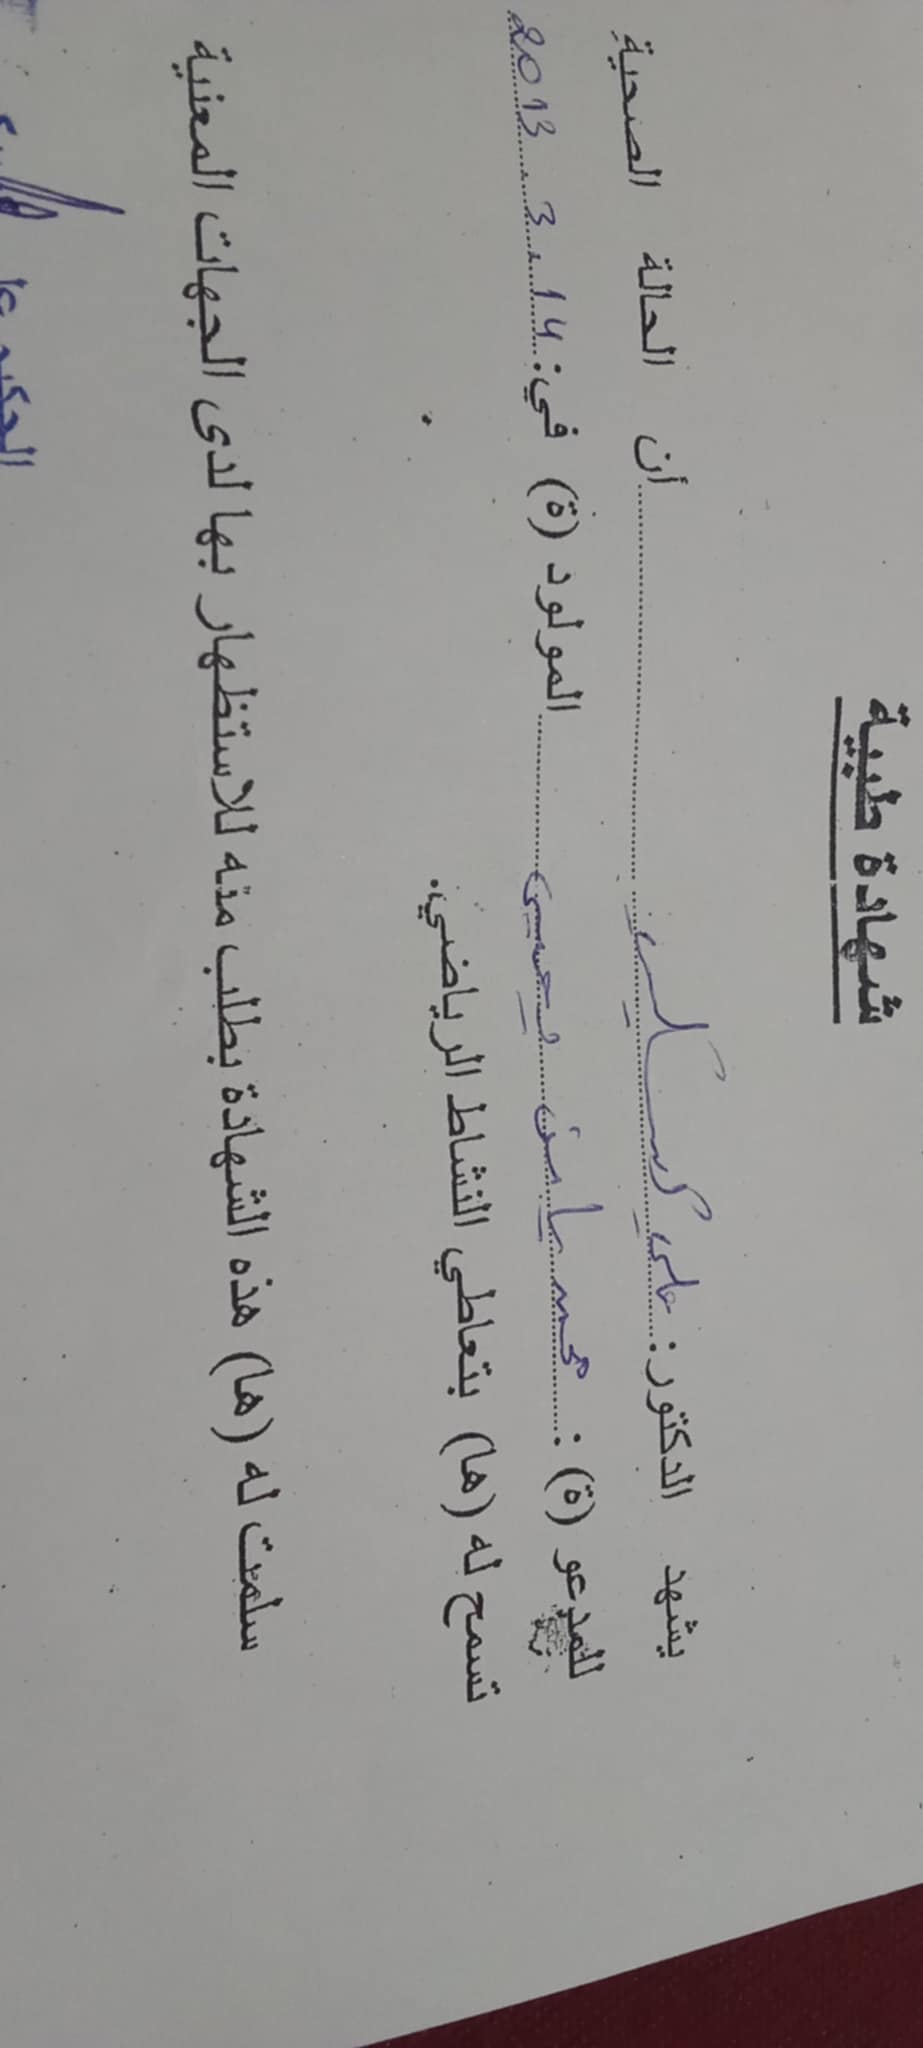 شهادة طبية
يشهد الدكتور: علي كسكاس أن الحالة الصحية
للمدعو (ة) : محمد يامن يحيى المولود (ة) في: 14 . 3 . 2013
تسمح له (ها) بتعاطي النشاط الرياضي.
سلمت له (ها) هذه الشهادة بطلب منه للاستظهار بها لدى الجهات المعنية